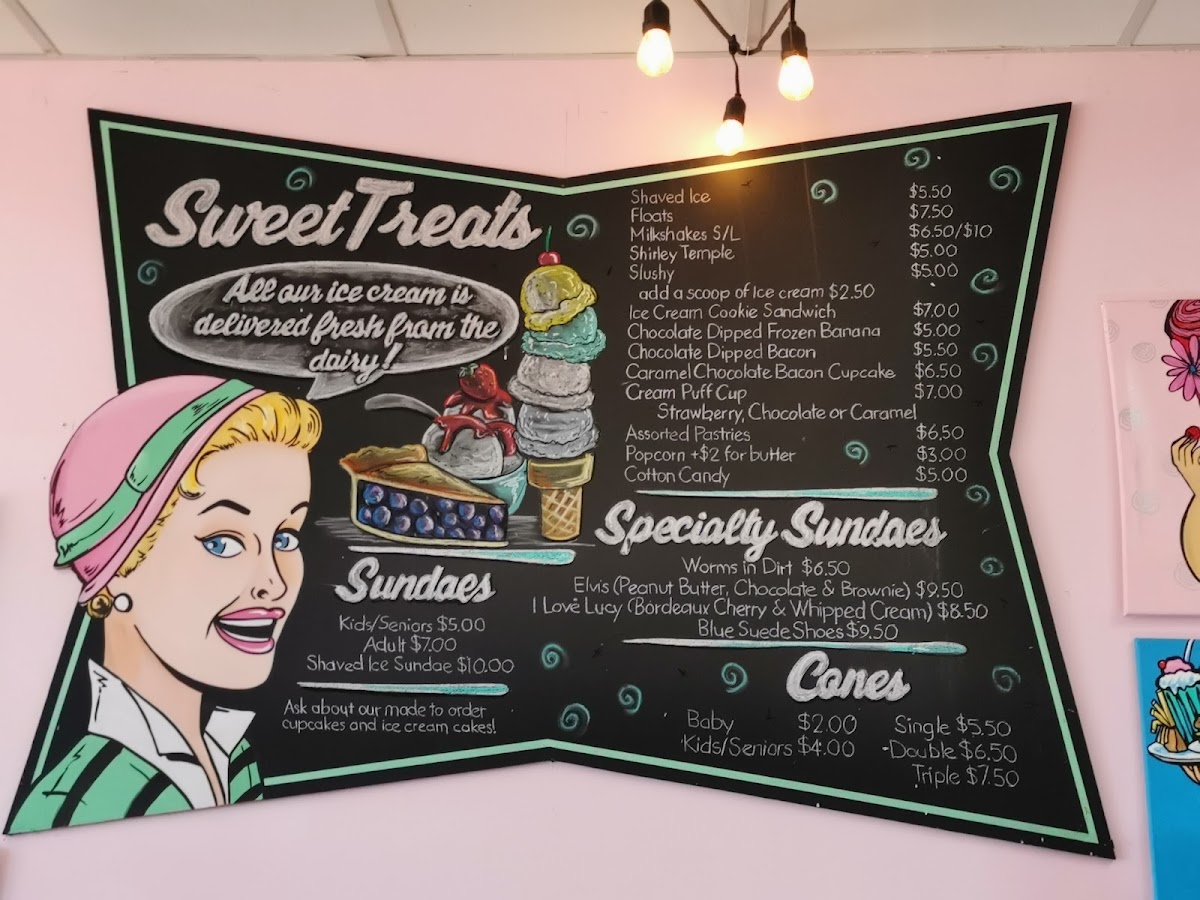 Sweet Treats
All our ice cream is
delivered fresh from the
dairy!
Shaved Ice $5.50
Floats $7.50
Milkshakes S/L $6.50/$10
Shirley Temple $5.00
Slushy $5.00
add a scoop of Ice cream $2.50
Ice Cream Cookie Sandwich $7.00
Chocolate Dipped Frozen Banana $5.00
Chocolate Dipped Bacon $5.50
Caramel Chocolate Bacon Cupcake $6.50
Cream Puff Cup $7.00
Strawberry, Chocolate or Caramel
Assorted Pastries $6.50
Popcorn +$2 for butter $3.00
Cotton Candy $5.00
Specialty Sundaes
Worms in Dirt $6.50
Elvis (Peanut Butter, Chocolate & Brownie) $9.50
I Love Lucy (Bordeaux Cherry & Whipped Cream) $8.50
Blue Suede Shoes $9.50
Sundaes
Kids/Seniors $5.00
Adult $7.00
Shaved Ice Sundae $10.00
Ask about our made to order
cupcakes and ice cream cakes!
Cones
Baby $2.00 Single $5.50
Kids/Seniors $4.00 Double $6.50
Triple $7.50